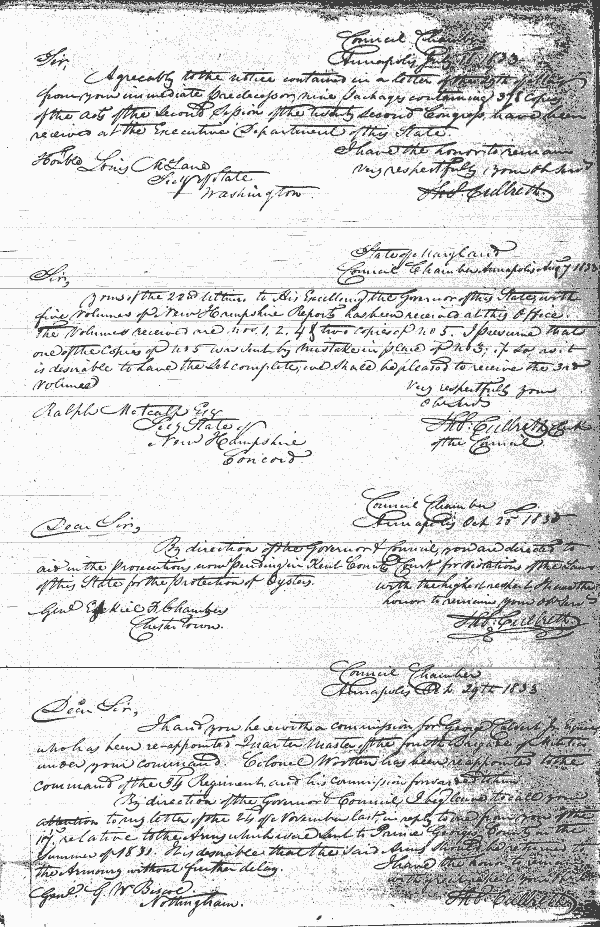 Council Chamber
Annapolis July 1833
Sir,
Agreeably to the notice contained in a letter of the
from your immediate Predecessor, nine Packages containing 375 Copies
of the acts of the Second Session of the twenty second Congress, have been
received at the Executive Department of this State.
I have the honor to remain
Very respectfully your Ob Servt
Honble Louis McLane
Secy of State
Washington
Ths. Culbreth
State of Maryland
Council Chamber Annapolis Aug 7 1833
Sir,
Yours of the 22nd letter to His Excellency the Governor of this State, with
five volumes of New Hampshire Reports has been received at this Office.
The Volumes received are, nos. 1, 2, 4 & two copies of no 5. I presume that
one of the Copies of no 5 was sent by mistake in place of no 3; if so, as it
is desirable to have the Set complete, we shall be pleased to receive the 3rd
Volume
Very respectfully your
Ob Servt
Ralph Metcalf Esq
Secy State of
New Hampshire
Concord
Ths. Culbreth Clk
of the Council
Council Chamber
Annapolis Oct 25th 1833
Dear Sir,
By direction of the Governor & Council, you are directed to
aid in the Prosecutions now Pending in Kent County Court for violations of the Laws
of this State for the protection of Oysters.
with the highest respect I have the
honor to remain your Ob Serv
Genl Ezekiel F. Chambers
Chester Town.
Ths. Culbreth
Council Chamber
Annapolis Oct. 29th 1833
Dear Sir,
I hand you herewith a commission for George Jr. Esquire
who has been re-appointed Quarter Master of the fourth Brigade of Militia
under your command. Colonel Wootten has been reappointed to the
command of the 34 Regiment and his commission forwarded him.
By direction of the Governor & Council, I beg leave to call your
attention to my letter of the 24 of November last, in reply to one from you of the
17, relative to the Arms which were sent to Prince Georges County in the
Summer of 1831. It is desirable that the said Arms should be returned
the Armoury without further delay.
I have the honor to remain
Genl. G. W. Biscoe
Nottingham.
Ths. Culbreth